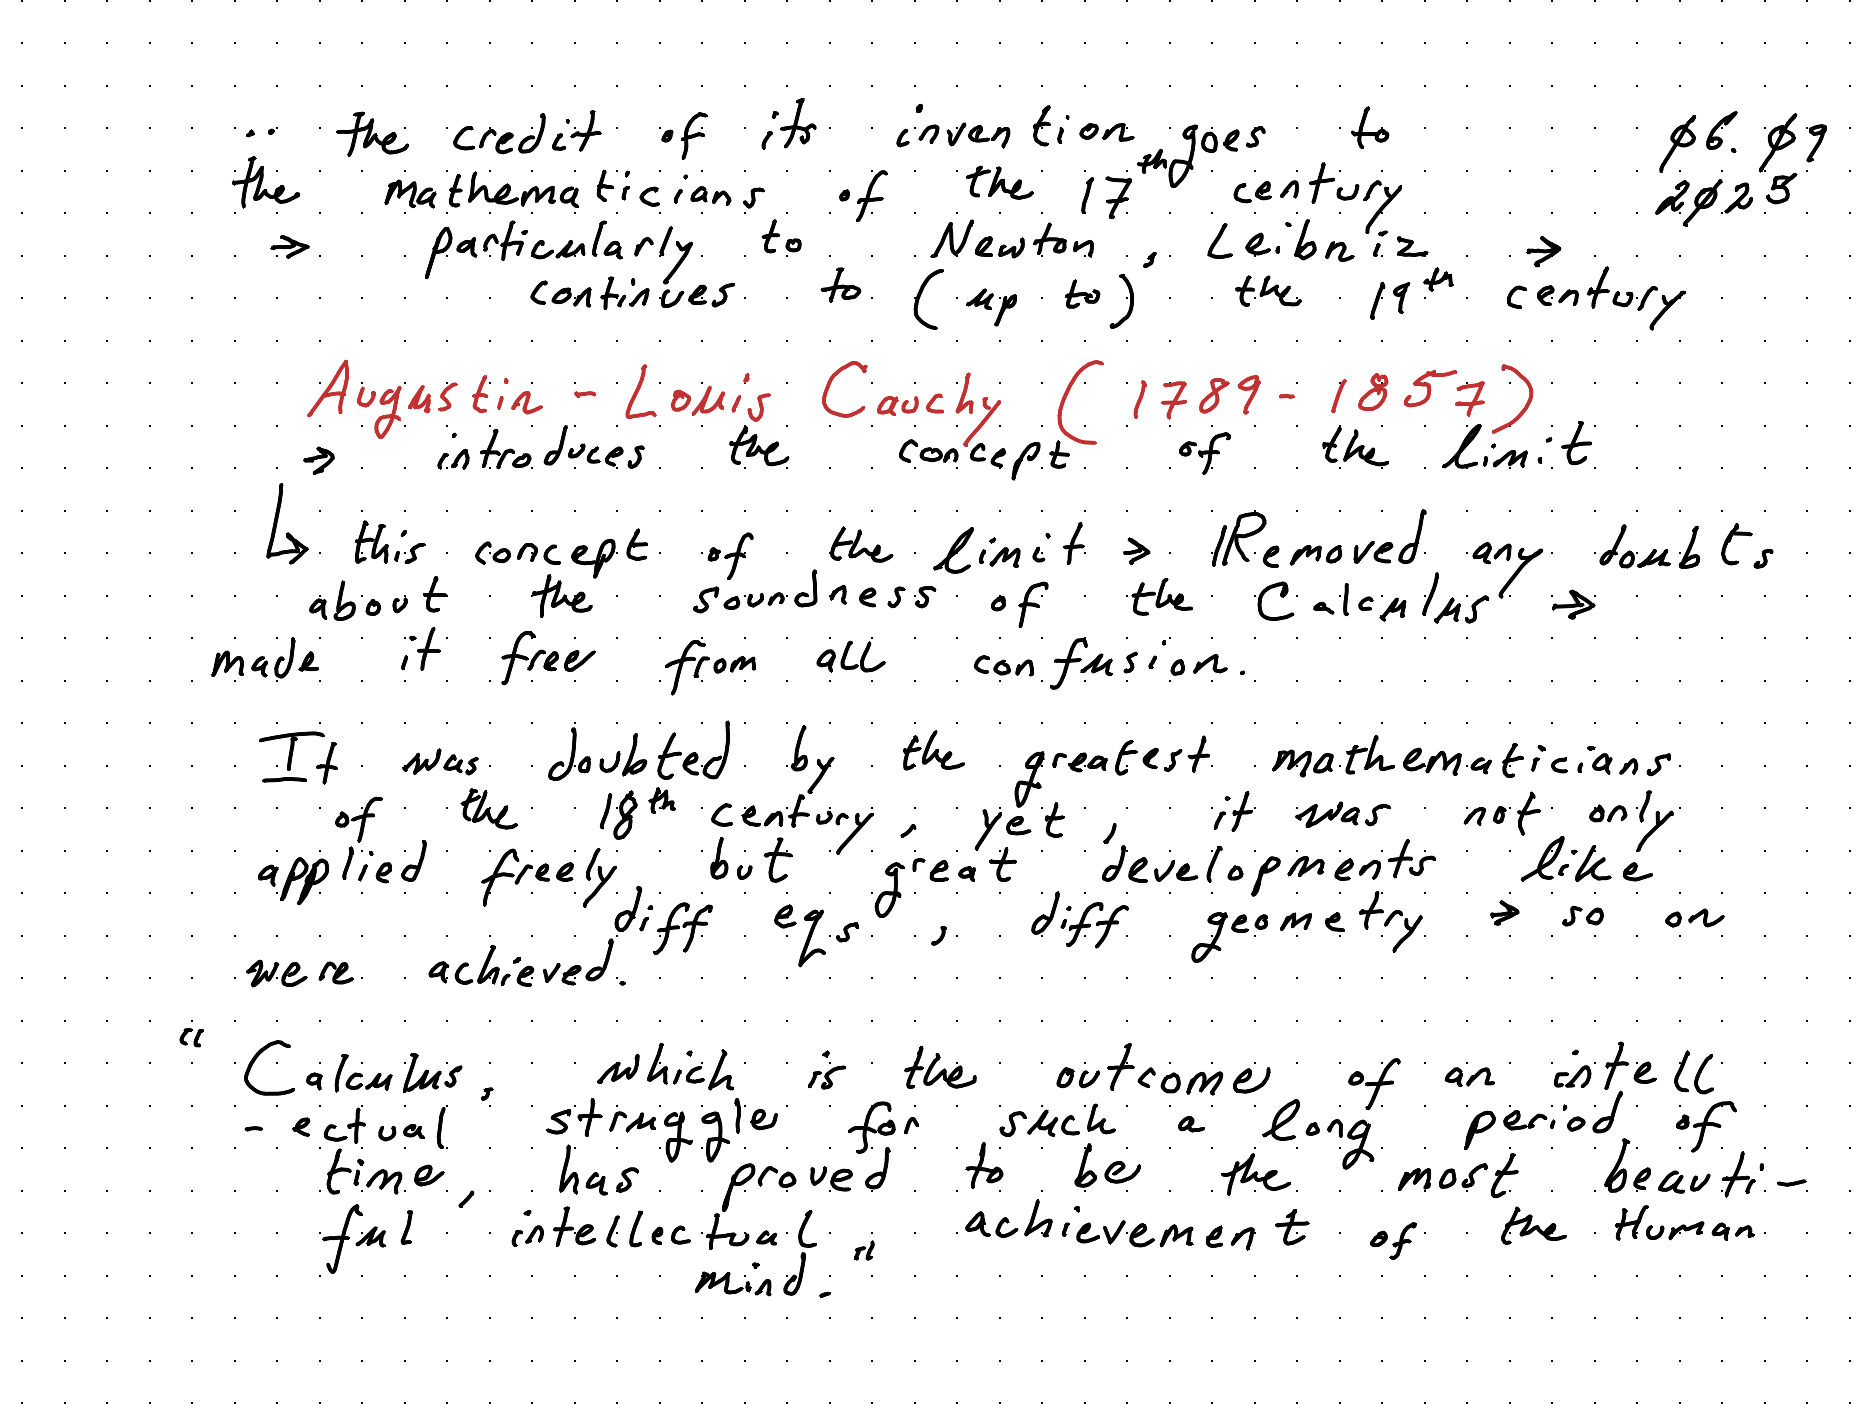 .. the credit of its invention goes to
06.09
the mathematicians of the 17th century
2025
→ particularly to Newton, Leibniz →
continues to (up to) the 19th century
Augustin-Louis Cauchy (1789-1857)
→ introduces the concept of the limit
↳ this concept of the limit → Removed any doubts
about the soundness of the Calculus →
made it free from all confusion.
It was doubted by the greatest mathematicians
of the 18th century, yet, it was not only
applied freely but great developments like
diff eqs, diff geometry → so on
were achieved.
" Calculus, which is the outcome of an intell
-ectual struggle for such a long period of
time, has proved to be the most beauti-
ful intellectual achievement of the Human
mind."